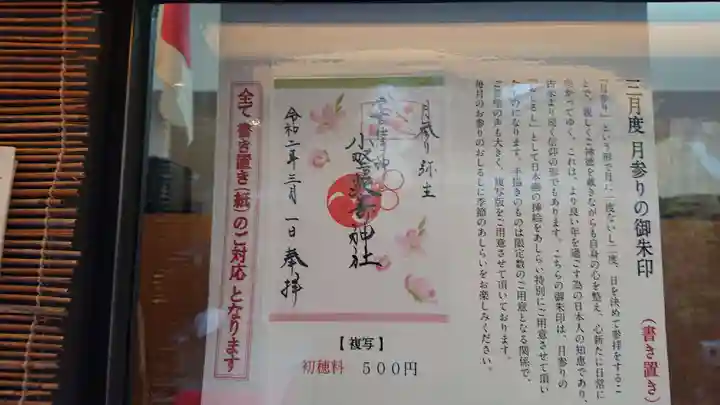 三月度 月参りの御朱印
（書き置き）
「月参り」という形で月に一度ないし二度、日を決めて参拝をするこ
とで、親しくご神徳を戴きながらも自身の心を整え、心新たに日常に
向かってゆく。これは、より良い年を過ごす為の日本人の知恵であり、
古来より続く信仰の形でもあります。こちらの御朱印は、月参りの
「おしるし」として日本画の挿絵をあしらい特別にご用意させて頂い
たものになります。手描きのものは限定数のご用意となる関係で、
ご希望の声も大きく、複写版をご用意させて頂いております。
毎月のお参りのおしるしに季節のあしらいをお楽しみください。
月参り 弥生
小野照崎神社
令和二年三月一日 奉拝
全て 書き置き（紙）のご対応 となります
【複写】
初穂料 500円